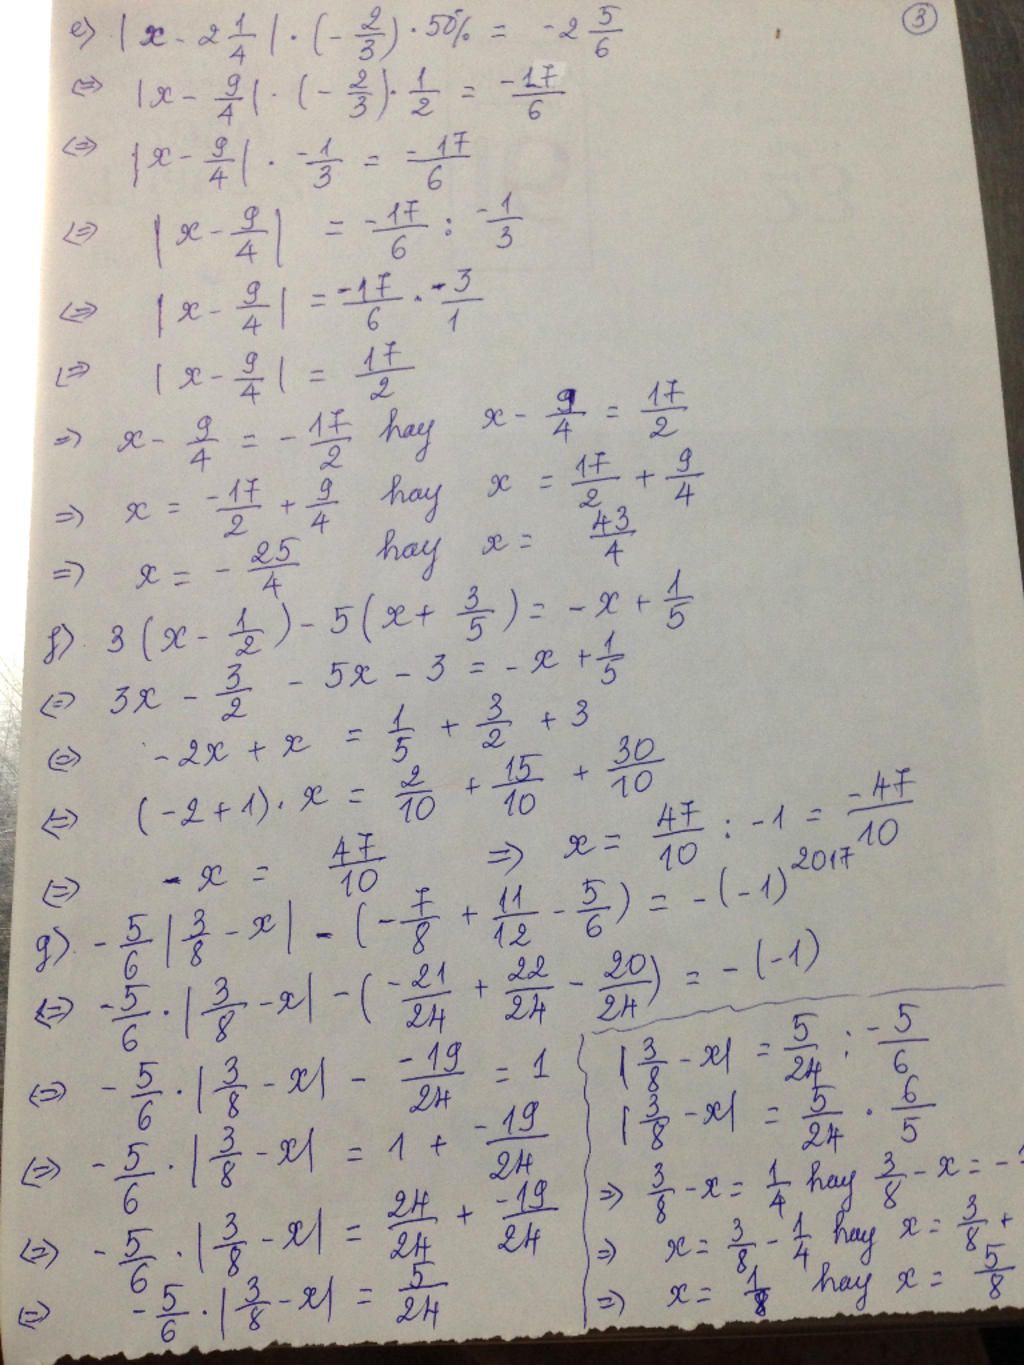 3
e) |x - 2 1/4| · (-2/3) · 50% = -2 5/6
<=> |x - 9/4| · (-2/3) · 1/2 = -17/6
<=> |x - 9/4| · -1/3 = -17/6
<=> |x - 9/4| = -17/6 : -1/3
<=> |x - 9/4| = -17/6 · -3/1
<=> |x - 9/4| = 17/2
=> x - 9/4 = -17/2 hay x - 9/4 = 17/2
=> x = -17/2 + 9/4 hay x = 17/2 + 9/4
=> x = -25/4 hay x = 43/4
f) 3(x - 1/2) - 5(x + 3/5) = -x + 1/5
<=> 3x - 3/2 - 5x - 3 = -x + 1/5
<=> -2x + x = 1/5 + 3/2 + 3
<=> (-2+1) · x = 2/10 + 15/10 + 30/10
<=> -x = 47/10 => x = 47/10 : -1 = -47/10
g) -5/6 |3/8 - x| - (-7/8 + 11/12 - 5/6) = -(-1)^2017
<=> -5/6 · |3/8 - x| - (-21/24 + 22/24 - 20/24) = -(-1)
<=> -5/6 · |3/8 - x| - -19/24 = 1
<=> -5/6 · |3/8 - x| = 1 + -19/24
<=> -5/6 · |3/8 - x| = 24/24 + -19/24
<=> -5/6 · |3/8 - x| = 5/24
|3/8 - x| = 5/24 : -5/6
|3/8 - x| = 5/24 · 6/5
=> 3/8 - x = 1/4 hay 3/8 - x = -
=> x = 3/8 - 1/4 hay x = 3/8 +
=> x = 1/8 hay x = 5/8